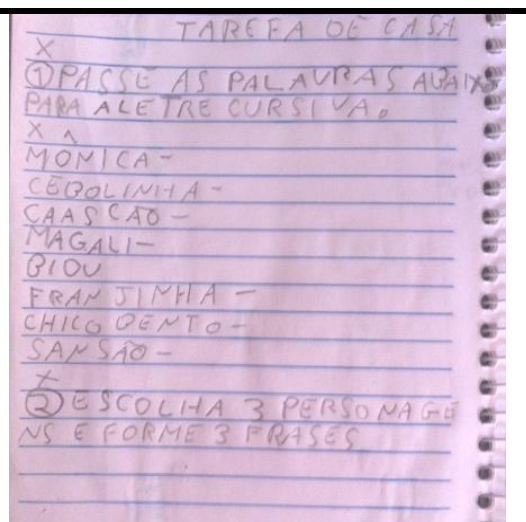 TAREFA DE CASA
X
① PASSE AS PALAVRAS ABAIXO
PARA ALETRE CURSIVA.
X ^
MONICA -
CEBOLINHA -
CAASCÃO -
MAGALI -
BIDU
FRANJINHA -
CHICO BENTO -
SANSÃO -
X
② ESCOLHA 3 PERSONAGE
NS E FORME 3 FRASES